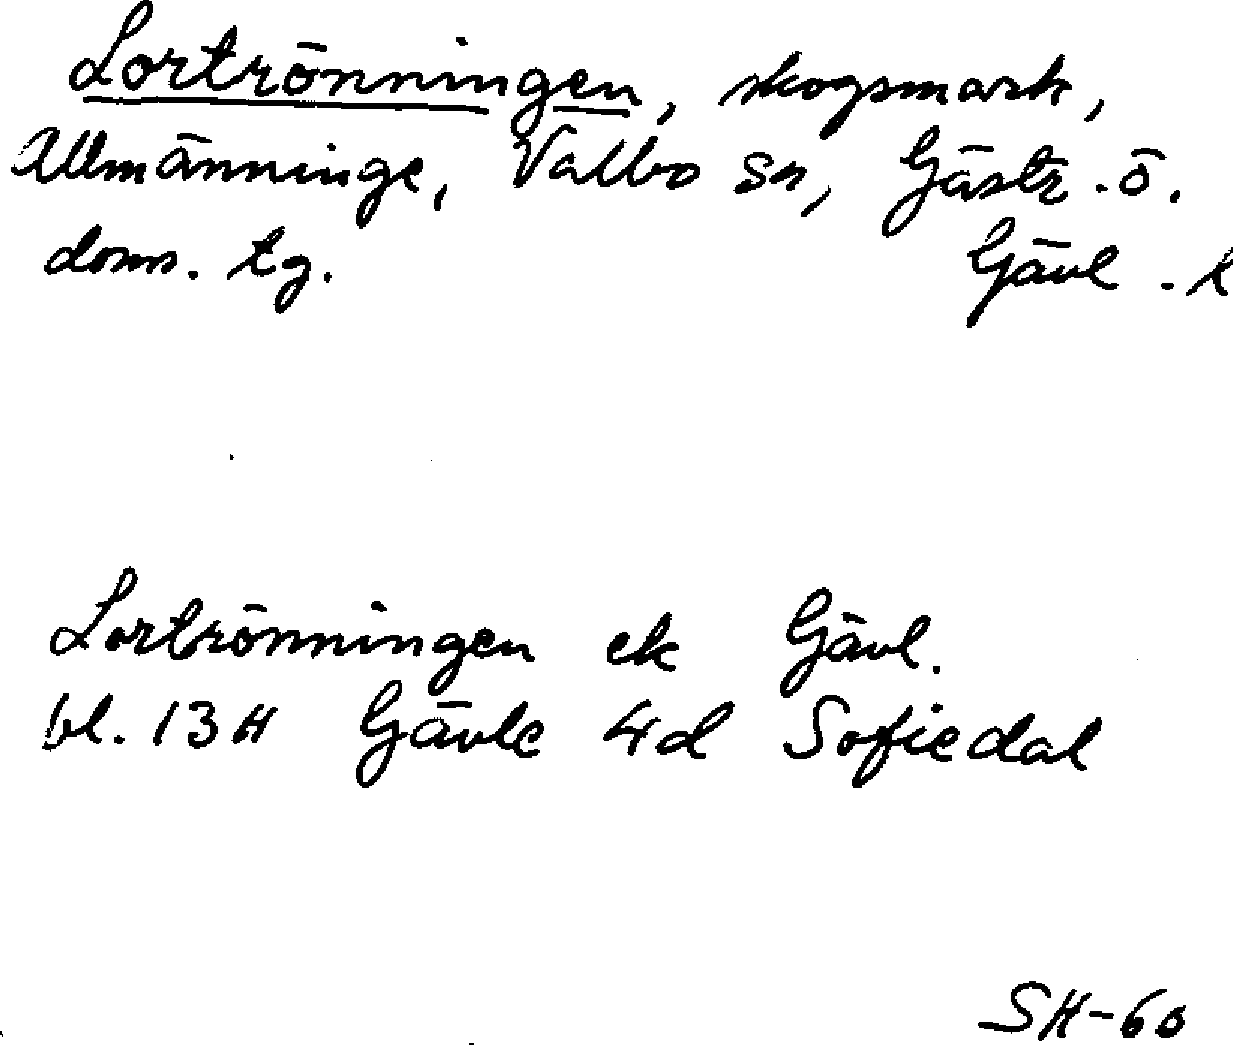 Lortrönningen, skogsmark,
Allmänninge, Valbo sn, Gästr. ö.
doms. tg. Gävl. k
Lortrönningen ek Gävl.
bl. 13H Gävle 4d Sofiedal
SH-60